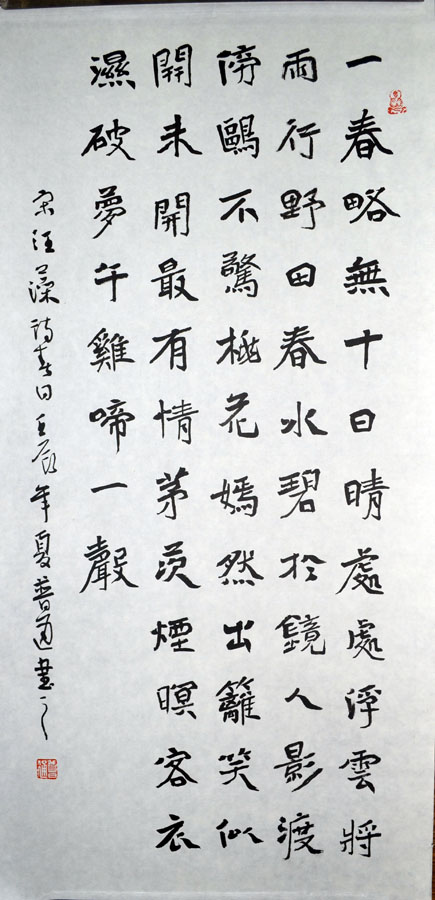 一春略無十日晴處處浮雲將
雨行野田春水碧於鏡人影渡
傍鷗不驚桃花嫣然出籬笑似
開未開最有情茅茨煙暝客衣
濕破夢午雞啼一聲
宋汪藻詩春日壬辰年夏普通書之